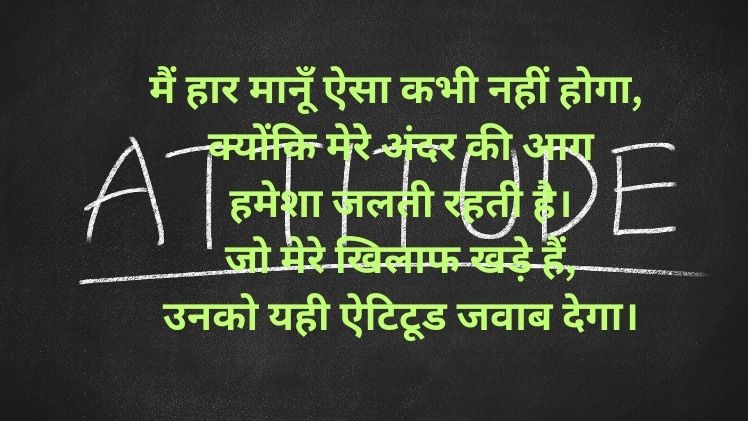 मैं हार मानूँ ऐसा कभी नहीं होगा,
क्योंकि मेरे अंदर की आग
ATTITUDE
हमेशा जलती रहती है।
जो मेरे खिलाफ खड़े हैं,
उनको यही ऐटिटूड जवाब देगा।